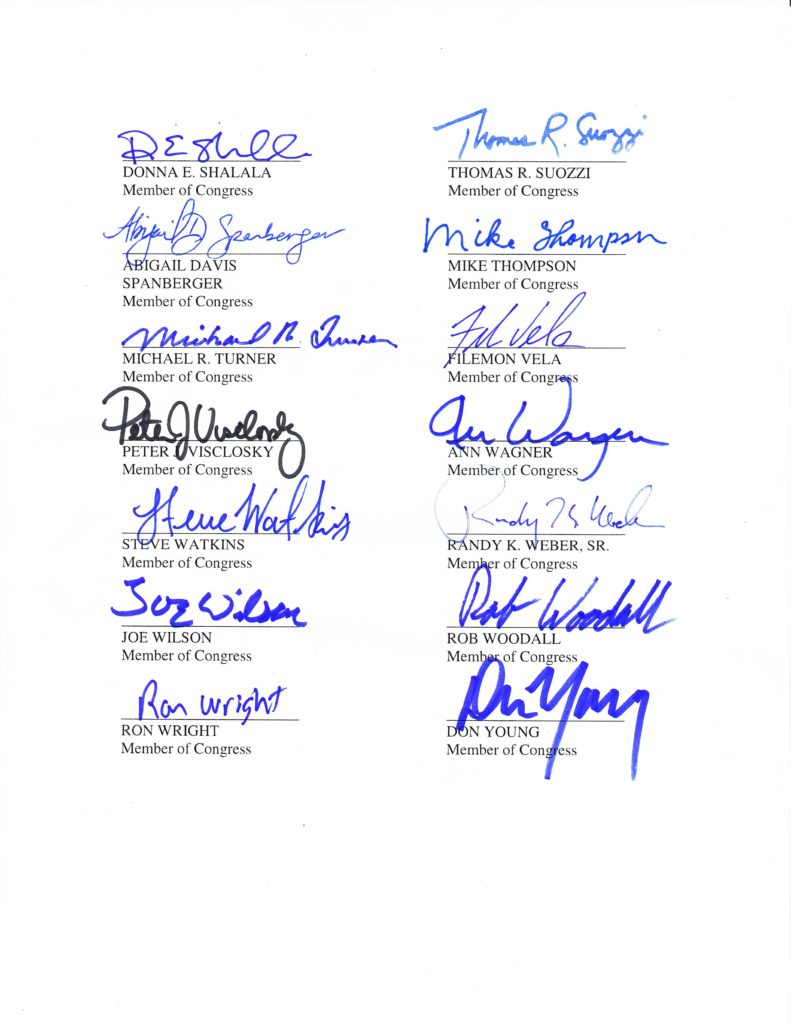 D E Shalala
DONNA E. SHALALA
Member of Congress
Thomas R. Suozzi
THOMAS R. SUOZZI
Member of Congress
Abigail D Spanberger
ABIGAIL DAVIS
SPANBERGER
Member of Congress
Mike Thompson
MIKE THOMPSON
Member of Congress
Michael R. Turner
MICHAEL R. TURNER
Member of Congress
Fil Vela
FILEMON VELA
Member of Congress
Peter J Visclosky
PETER J. VISCLOSKY
Member of Congress
Ann Wagner
ANN WAGNER
Member of Congress
Steve Watkins
STEVE WATKINS
Member of Congress
Randy K Weber
RANDY K. WEBER, SR.
Member of Congress
Joe Wilson
JOE WILSON
Member of Congress
Rob Woodall
ROB WOODALL
Member of Congress
Ron Wright
RON WRIGHT
Member of Congress
Don Young
DON YOUNG
Member of Congress